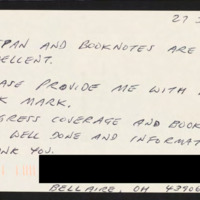 27
SPAN AND BOOKNOTES ARE
ELLENT.
ASE PROVIDE ME WITH
K MARK.
GRESS COVERAGE AND BOOK
WELL DONE AND INFORMAT
ANK YOU.
BELLAIRE, OH 43906